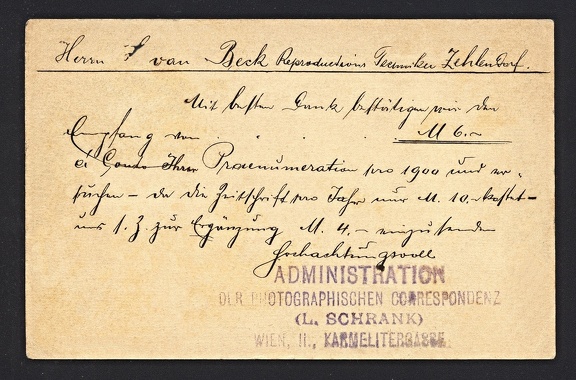 Herrn F van Beck Reproductions Techniker Zehlendorf.
Mit besten Dank bestätigen wir den
Empfang von . . . . M 6.-
à Conto Ihrer Praenumeration pro 1900 und er-
suchen - da die Zeitschrift pro Jahr nur M. 10.- kostet -
uns s. Z. zur Ergänzung M. 4.- einzusenden
Hochachtungsvoll
ADMINISTRATION
DER PHOTOGRAPHISCHEN CORRESPONDENZ
(L. SCHRANK)
WIEN, II., KARMELITERGASSE